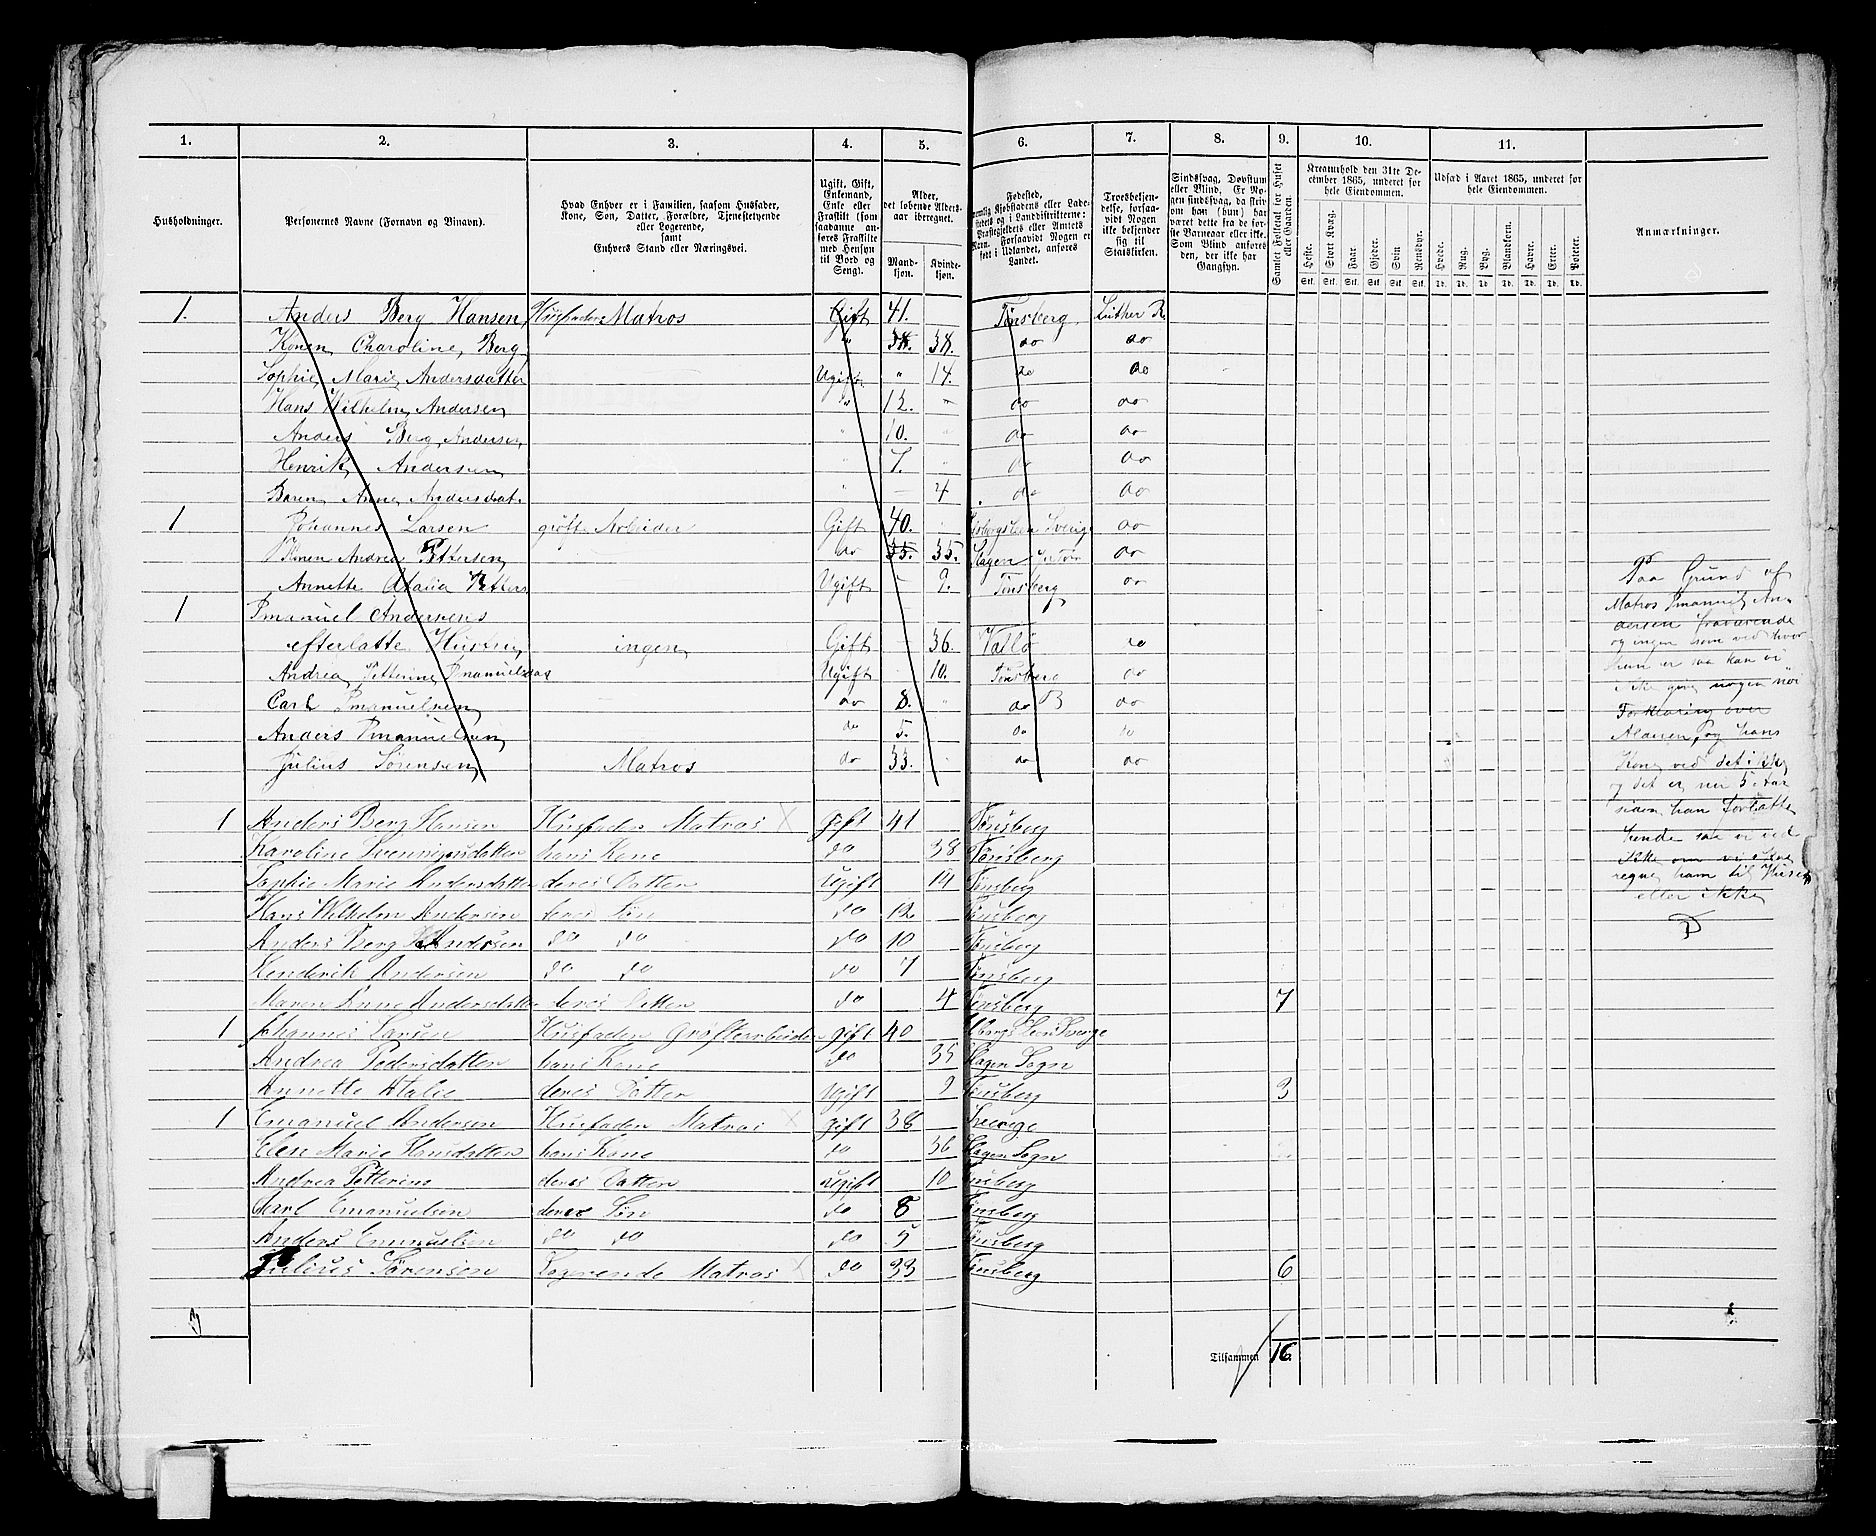 1. 2. 3. 4. 5. 6. 7. 8. 9. 10. 11.
Husholdninger.
Personernes Navne (Fornavn og Binavn).
Hvad Enhver er i Familien, saasom Husfader,
Kone, Søn, Datter, Forældre, Tjenestetyende
eller Logerende,
samt
Enhvers Stand eller Næringsvei.
Ugift, Gift,
Enkemand,
Enke eller
Fraskilt (som
saadanne an-
føres Fraskilte
med Hensyn
til Bord og
Seng).
Alder,
det løbende Alders-
aar iberegnet.
Mand-
kjøn.
Kvinde-
kjøn.
Fødested,
nemlig Kjøbstadens eller Lade-
stedets og i Landdistrikterne:
Præstegjeldets eller Amtets
Navn. Forsaavidt Nogen er
født i Udlandet, anføres
Landet.
Troesbekjen-
delse, forsaa-
vidt Nogen
ikke bekjender
sig til
Statskirken.
Sindssvag, Døvstum
eller Blind. Er No-
gen sindssvag, da skriv
om han (hun) har
været dette fra de før-
ste Barneaar eller ikke.
Som Blind anføres
den, der ikke har
Gangsyn.
Samlet Folketal for Huset
eller Gaarden.
Kreaturhold den 31te De-
cember 1865, underet for
hele Eiendommen.
Heste. Stort Kvæg. Faar. Gjeder. Svin Rensdyr.
Stk. Stk. Stk. Stk. Stk. Stk.
Udsæd i Aaret 1865, underet for
hele Eiendommen.
Hvede. Rug. Byg. Blandkorn. Havre. Erter. Poteter.
Td. Td. Td. Td. Td. Td. Td.
Anmærkninger.
1. Anders Berg Hansen Husfader Matros Gift 41. Tønsberg Luther R
Konen Charoline Berg " 38. 38. do do
Sophie Marie Andersdatter Ugift " 14. do do
Hans Wilhelm Andersen do 12. do do
Anders Berg Andersen " 10. " do do
Henrik Andersen " 7. " do do
Maren Anne Andersdat. " 4 do do
1 Johannes Larsen grøft Arbeider Gift 40. Sverige do
Konen Andrea Pettersen do 35. 35. Slagen do
Annette Atalia Petters Ugift 9. Tønsberg do
1 Emanuel Andersens
efterlatte Hustru ingen Gift 36. Vallø do
Andrea Petterine Emanuelsdat Ugift 10. Tønsberg do
Carl Emanuelsen do 8. " do do
Anders Emanuelsen do 5. do do
Julius Sørensen Matros do 33. do do
1 Anders Berg Hansen Husfader Matros X gift 41 Tönsberg
Karoline Svenningsdatter hans Kone do 38 Tönsberg
Sophie Marie Andersdatter deres Datter Ugift 14 Tønsberg
Hans Wilhelm Andersen deres Søn do 12 Tønsberg
Anders Berg Andersen do do do 10 Tønsberg
Henderik Andersen do do do 7 Tønsberg
Maren Anne Andersdatter deres Datter do 4 Tønsberg 7
1 Johannes Larsen Husfader Grøftearbeider gift 40 Sverge
Andrea Pedersdatter hans Kone do 35 Slagen Sogn
Annette Atalie deres Datter Ugift 9 Tønsberg 3
1 Emanuel Andersen Husfader Matros X gift 38 Sverige
Elen Marie Hansdatter hans Kone do 36 Slagen Sogn
Andrea Petterine deres Datter Ugift 10 Tønsberg
Karl Emanuelsen deres Søn do 8 Tønsberg
Anders Emanuelsen do do do 5 Tønsberg
Julius Sørensen Logerende Matros X do 33 Tønsberg 6
Tilsammen 16
Paa Grund af
Matros Emanuel An-
dersen fraværende
og ingen som ved hvor
hun er saa kan vi
ikke give nogen
Forklaring over
Alderen, og hans
Kone ved det ikke
og det er nu 5 Aar
siden han forlatte
hende saa vi ved
ikke om vi skal
regne ham til Huset
eller ikke